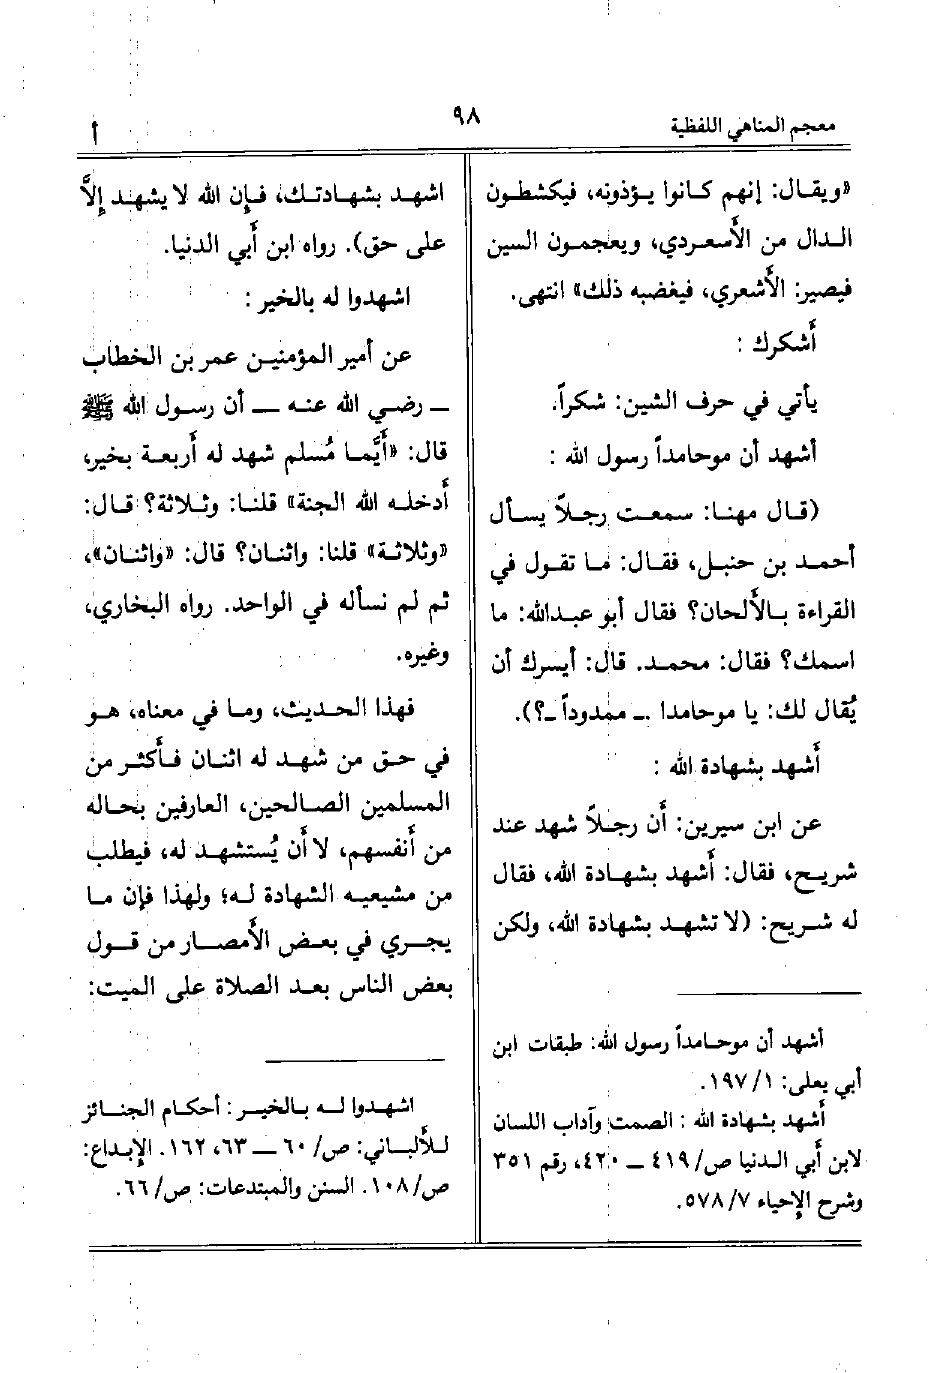 معجم المناهي اللفظية
٩٨
أ
«ويقال: إنهم كانوا يؤذونه، فيكشطون
الدال من الأسعردي، ويعجمون السين
فيصير: الأشعري، فيغضبه ذلك» انتهى.
أشكرك :
يأتي في حرف الشين: شكراً.
أشهد أن موحامداً رسول الله :
(قال مهنا: سمعت رجلاً يسأل
أحمد بن حنبل، فقال: ما تقول في
القراءة بالألحان؟ فقال أبو عبدالله: ما
اسمك؟ فقال: محمد. قال: أيسرك أن
يُقال لك: يا موحامدا ـ ممدوداً ـ؟).
أشهد بشهادة الله :
عن ابن سيرين: أن رجلاً شهد عند
شريح، فقال: أشهد بشهادة الله، فقال
له شريح: (لا تشهد بشهادة الله، ولكن
أشهد أن موحامداً رسول الله: طبقات ابن
أبي يعلى: ١/ ١٩٧.
أشهد بشهادة الله : الصمت وآداب اللسان
لابن أبي الدنيا ص/ ٤١٩ ــ ٤٢٠، رقم ٣٥١
وشرح الإحياء ٧/ ٥٧٨.
اشهد بشهادتك، فإن الله لا يشهد إلاَّ
على حق). رواه ابن أبي الدنيا.
اشهدوا له بالخير :
عن أمير المؤمنين عمر بن الخطاب
ــ رضي الله عنه ــ أن رسول الله ﷺ
قال: «أيَّما مُسلم شهد له أربعة بخير،
أدخله الله الجنة» قلنا: وثلاثة؟ قال:
«وثلاثة» قلنا: واثنان؟ قال: «واثنان»،
ثم لم نسأله في الواحد. رواه البخاري،
وغيره.
فهذا الحديث، وما في معناه، هو
في حق من شهد له اثنان فأكثر من
المسلمين الصالحين، العارفين بحاله
من أنفسهم، لا أن يُستشهد له، فيطلب
من مشيعيه الشهادة له؛ ولهذا فإن ما
يجري في بعض الأمصار من قول
بعض الناس بعد الصلاة على الميت:
اشهدوا له بالخير : أحكام الجنائز
للألباني: ص/ ٦٠ ــ ٦٣، ١٦٢. الإبداع:
ص/ ١٠٨. السنن والمبتدعات: ص/ ٦٦.